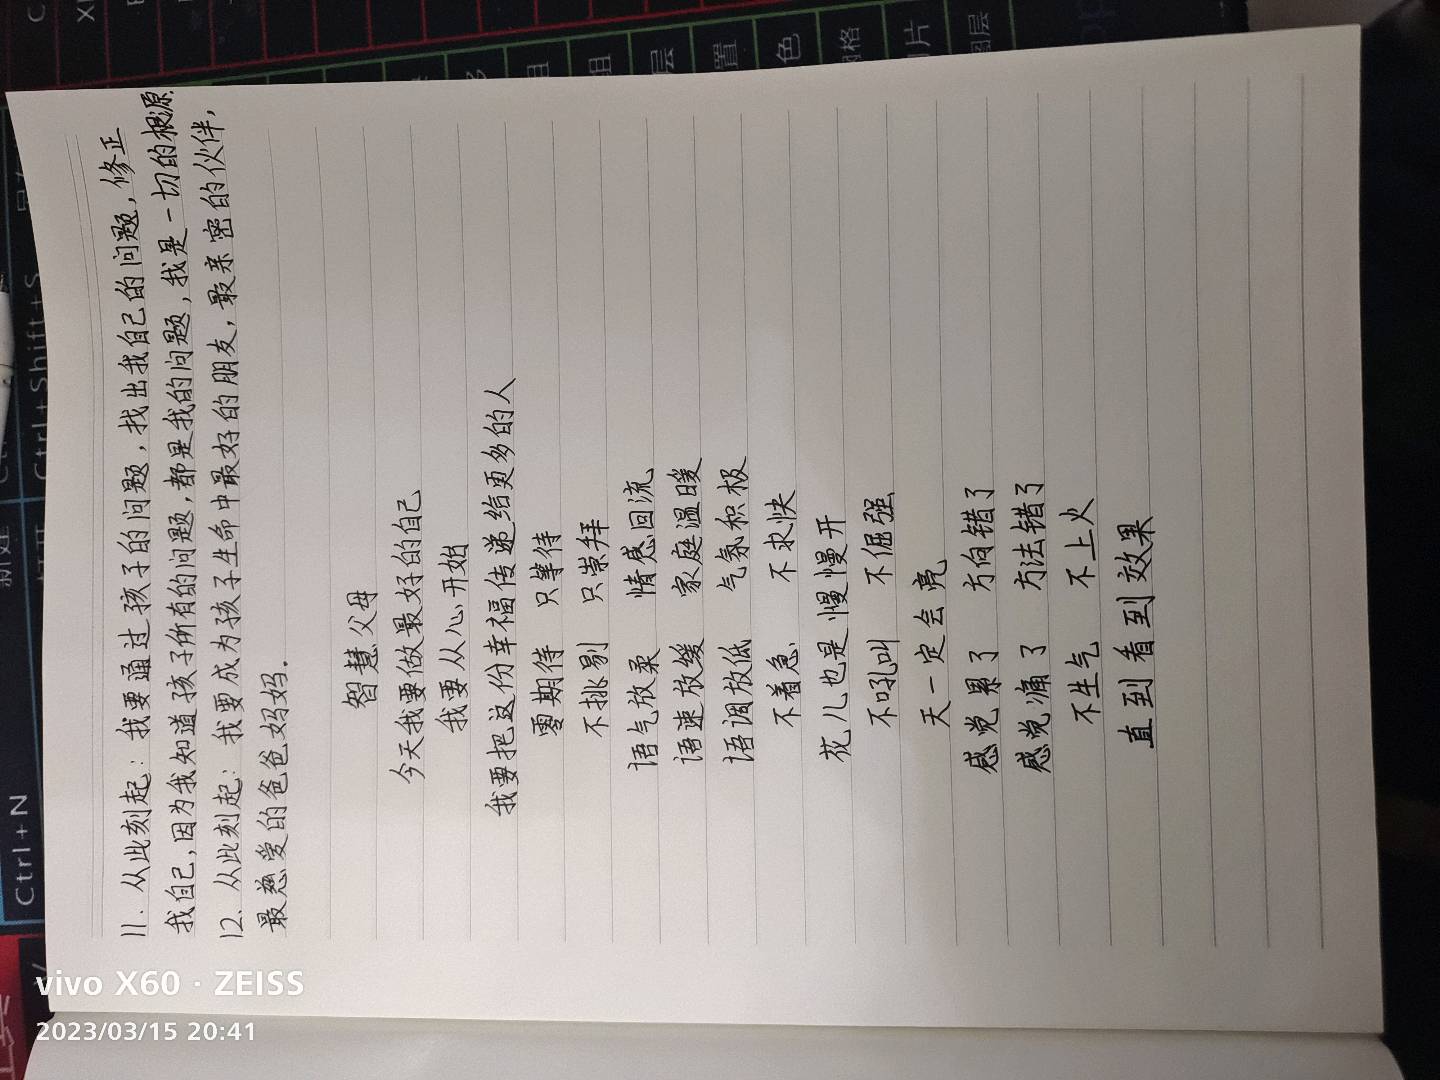 11. 从此刻起：我要通过孩子的问题，找出我自己的问题，修正
我自己，因为我知道孩子所有的问题，都是我的问题，我是一切的根源.
12. 从此刻起：我要成为孩子生命中最好的朋友，最亲密的伙伴，
最慈爱的爸爸妈妈.
智慧父母
今天我要做最好的自己
我要从心开始
我要把这份幸福传递给更多的人
零期待 只等待
不挑剔 只崇拜
语气放柔 情感回流
语速放缓 家庭温暖
语调放低 气氛积极
不着急 不求快
花儿也是慢慢开
不吼叫 不倔强
天一定会亮
感觉累了 方向错了
感觉痛了 方法错了
不生气 不上火
直到看到效果
Ctrl+N
新建
Ctrl+Shift+S
组
层
置
色
图层
vivo X60 · ZEISS
2023/03/15 20:41